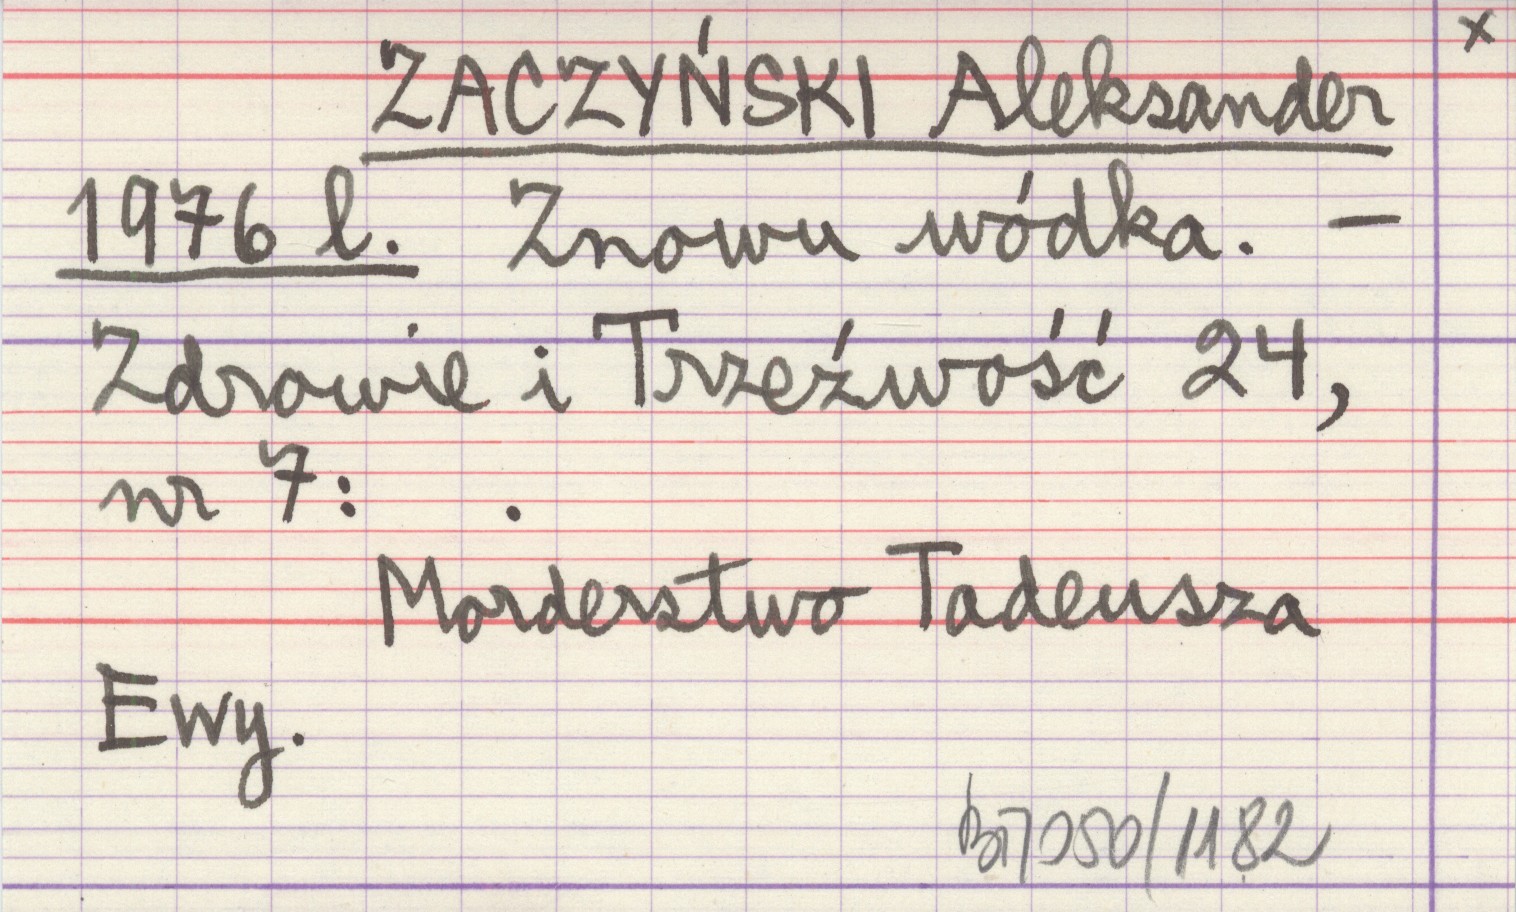 x
ZACZYŃSKI Aleksander
1976 l. Znowu wódka. –
Zdrowie i Trzeźwość 24,
nr 7: .
Morderstwo Tadeusza
Ewy.
/1182